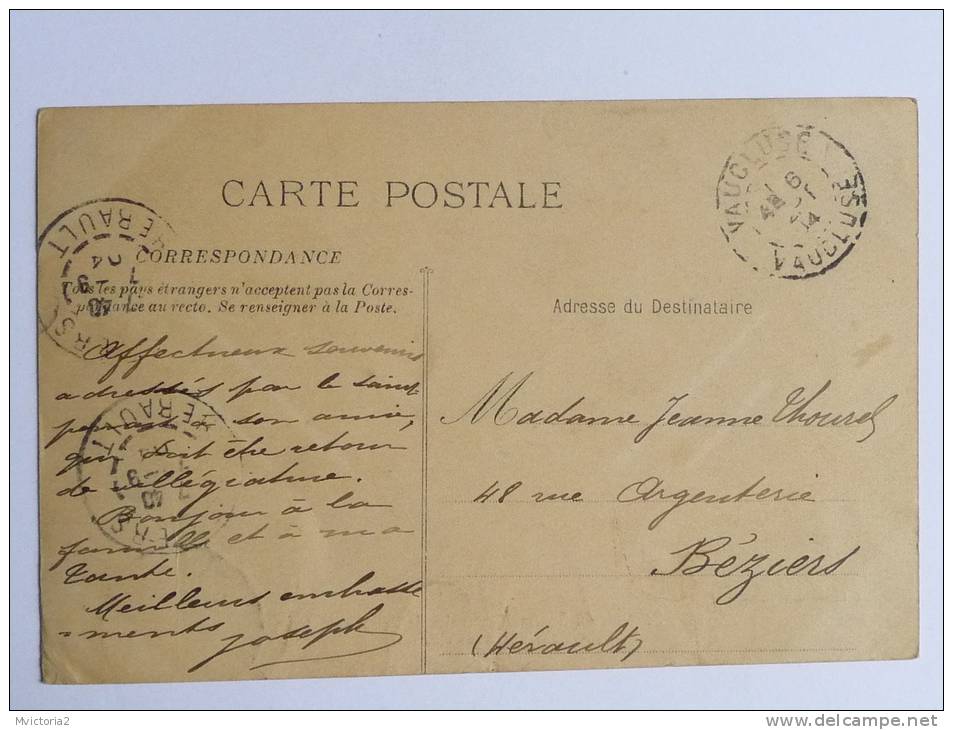 CARTE POSTALE
VAUCLUSE
6
VAUCLUSE
CORRESPONDANCE
Tous les pays étrangers n'acceptent pas la Corres-
pondance au recto. Se renseigner à la Poste.
HERAULT
Adresse du Destinataire
Affectueux souvenirs
adressés par le
son amie,
qui doit être retour
de villégiature.
Bonjour à la
famille et à ma
tante.
Meilleurs embrasse
=ments Joseph
HERAULT
Madame Jeanne Thourel
48 rue Argenterie
Béziers
(Hérault)
Mvictoria2
delcampe.net